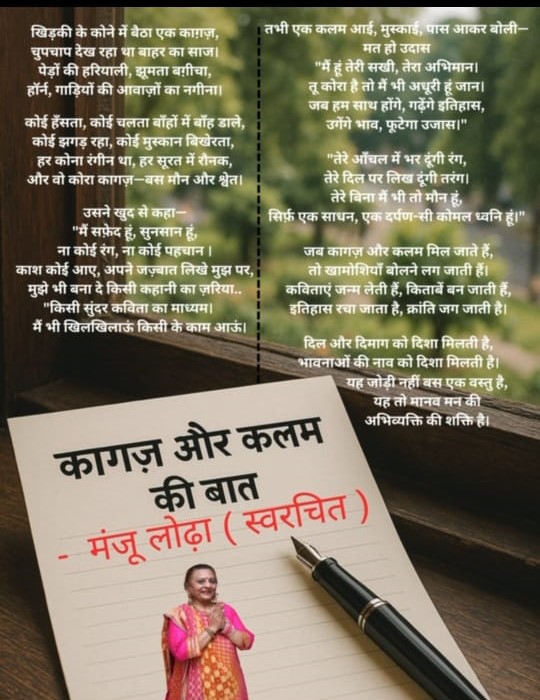 खिड़की के कोने में बैठा एक काग़ज़,
चुपचाप देख रहा था बाहर का साज।
पेड़ों की हरियाली, झूमता बग़ीचा,
हॉर्न, गाड़ियों की आवाज़ों का नगीना।
कोई हँसता, कोई चलता बाँहों में बाँह डाले,
कोई झगड़ रहा, कोई मुस्कान बिखेरता,
हर कोना रंगीन था, हर सूरत में रौनक,
और वो कोरा कागज़—बस मौन और श्वेत।
उसने खुद से कहा—
"मैं सफ़ेद हूं, सुनसान हूं,
ना कोई रंग, ना कोई पहचान ।
काश कोई आए, अपने जज़्बात लिखे मुझ पर,
मुझे भी बना दे किसी कहानी का ज़रिया..
"किसी सुंदर कविता का माध्यम।
मैं भी खिलखिलाऊं किसी के काम आऊं।
तभी एक कलम आई, मुस्काई, पास आकर बोली—
मत हो उदास
"मैं हूं तेरी सखी, तेरा अभिमान।
तू कोरा है तो मैं भी अधूरी हूं जान।
जब हम साथ होंगे, गढ़ेंगे इतिहास,
उगेंगे भाव, फूटेगा उजास।"
"तेरे आँचल में भर दूंगी रंग,
तेरे दिल पर लिख दूंगी तरंग।
तेरे बिना मैं भी तो मौन हूं,
सिर्फ़ एक साधन, एक दर्पण-सी कोमल ध्वनि हूं।"
जब कागज़ और कलम मिल जाते हैं,
तो खामोशियाँ बोलने लग जाती हैं।
कविताएं जन्म लेती हैं, किताबें बन जाती हैं,
इतिहास रचा जाता है, क्रांति जग जाती है।
दिल और दिमाग को दिशा मिलती है,
भावनाओं की नाव को दिशा मिलती है।
यह जोड़ी नहीं बस एक वस्तु है,
यह तो मानव मन की
अभिव्यक्ति की शक्ति है।
कागज़ और कलम
की बात
- मंजू लोढ़ा ( स्वरचित )